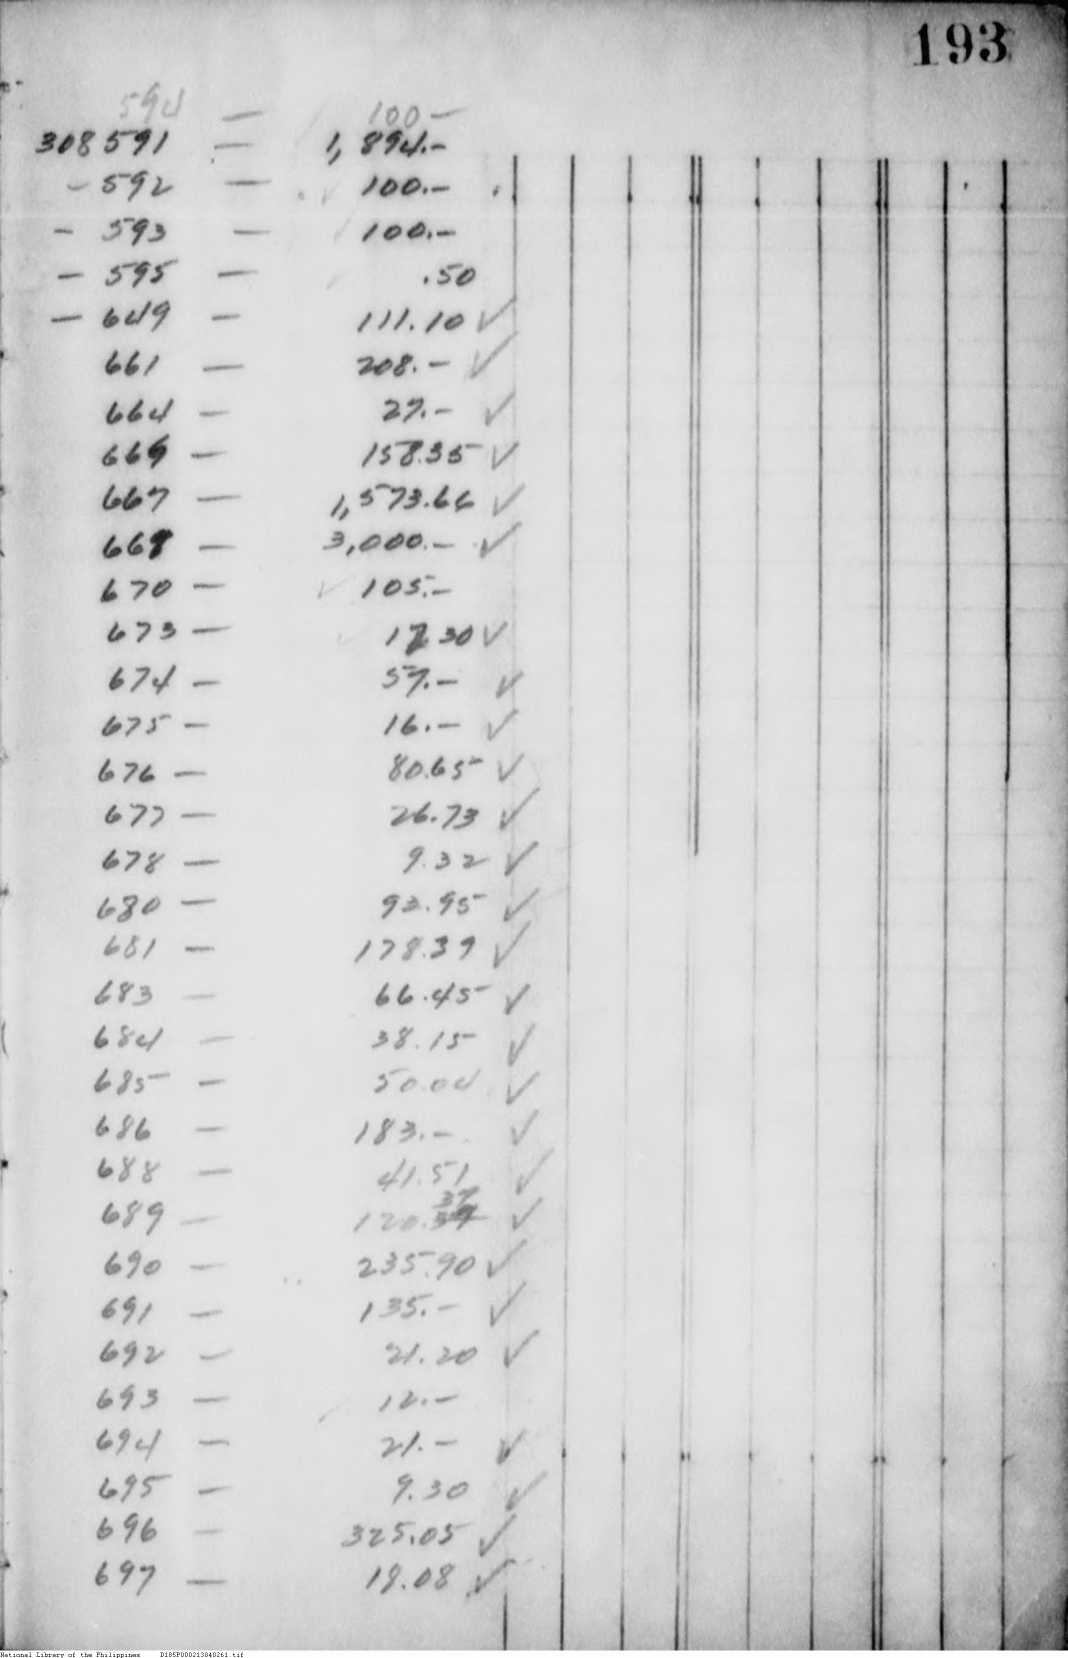 193
594 — 100 —
308591 — 1,894.—
- 592 — 100.—
- 593 — 100.—
- 595 — .50
- 649 — 111.10 ✓
661 — 208.— ✓
664 — 27.— ✓
666 — 158.35 ✓
667 — 1,573.66 ✓
668 — 3,000.— ✓
670 — ✓ 105.—
673 — 17.30 ✓
674 — 57.— ✓
675 — 16.— ✓
676 — 80.65 ✓
677 — 26.73 ✓
678 — 9.32 ✓
680 — 92.95 ✓
681 — 178.39 ✓
683 — 66.45 ✓
684 — 38.15 ✓
685 — 50.04 ✓
686 — 183.— ✓
688 — 41.51 ✓
37
689 — 120.39 ✓
690 — 235.90 ✓
691 — 135.— ✓
692 — 21.20 ✓
693 — 12.—
694 — 21.— ✓
695 — 9.30 ✓
696 — 325.05 ✓
697 — 18.08 ✓
National Library of the Philippines D185P000213840261.tif